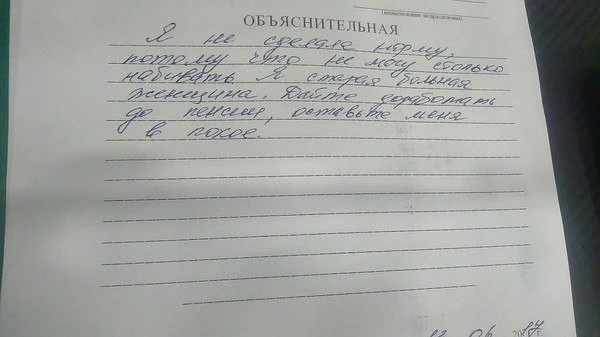 (наименование подразделения)
ОБЪЯСНИТЕЛЬНАЯ
Я не сделала норму,
потому что не могу столько
набивать Я старая больная
женщина. Дайте доработать
до пенсии, оставьте меня
в покое.
06 2017